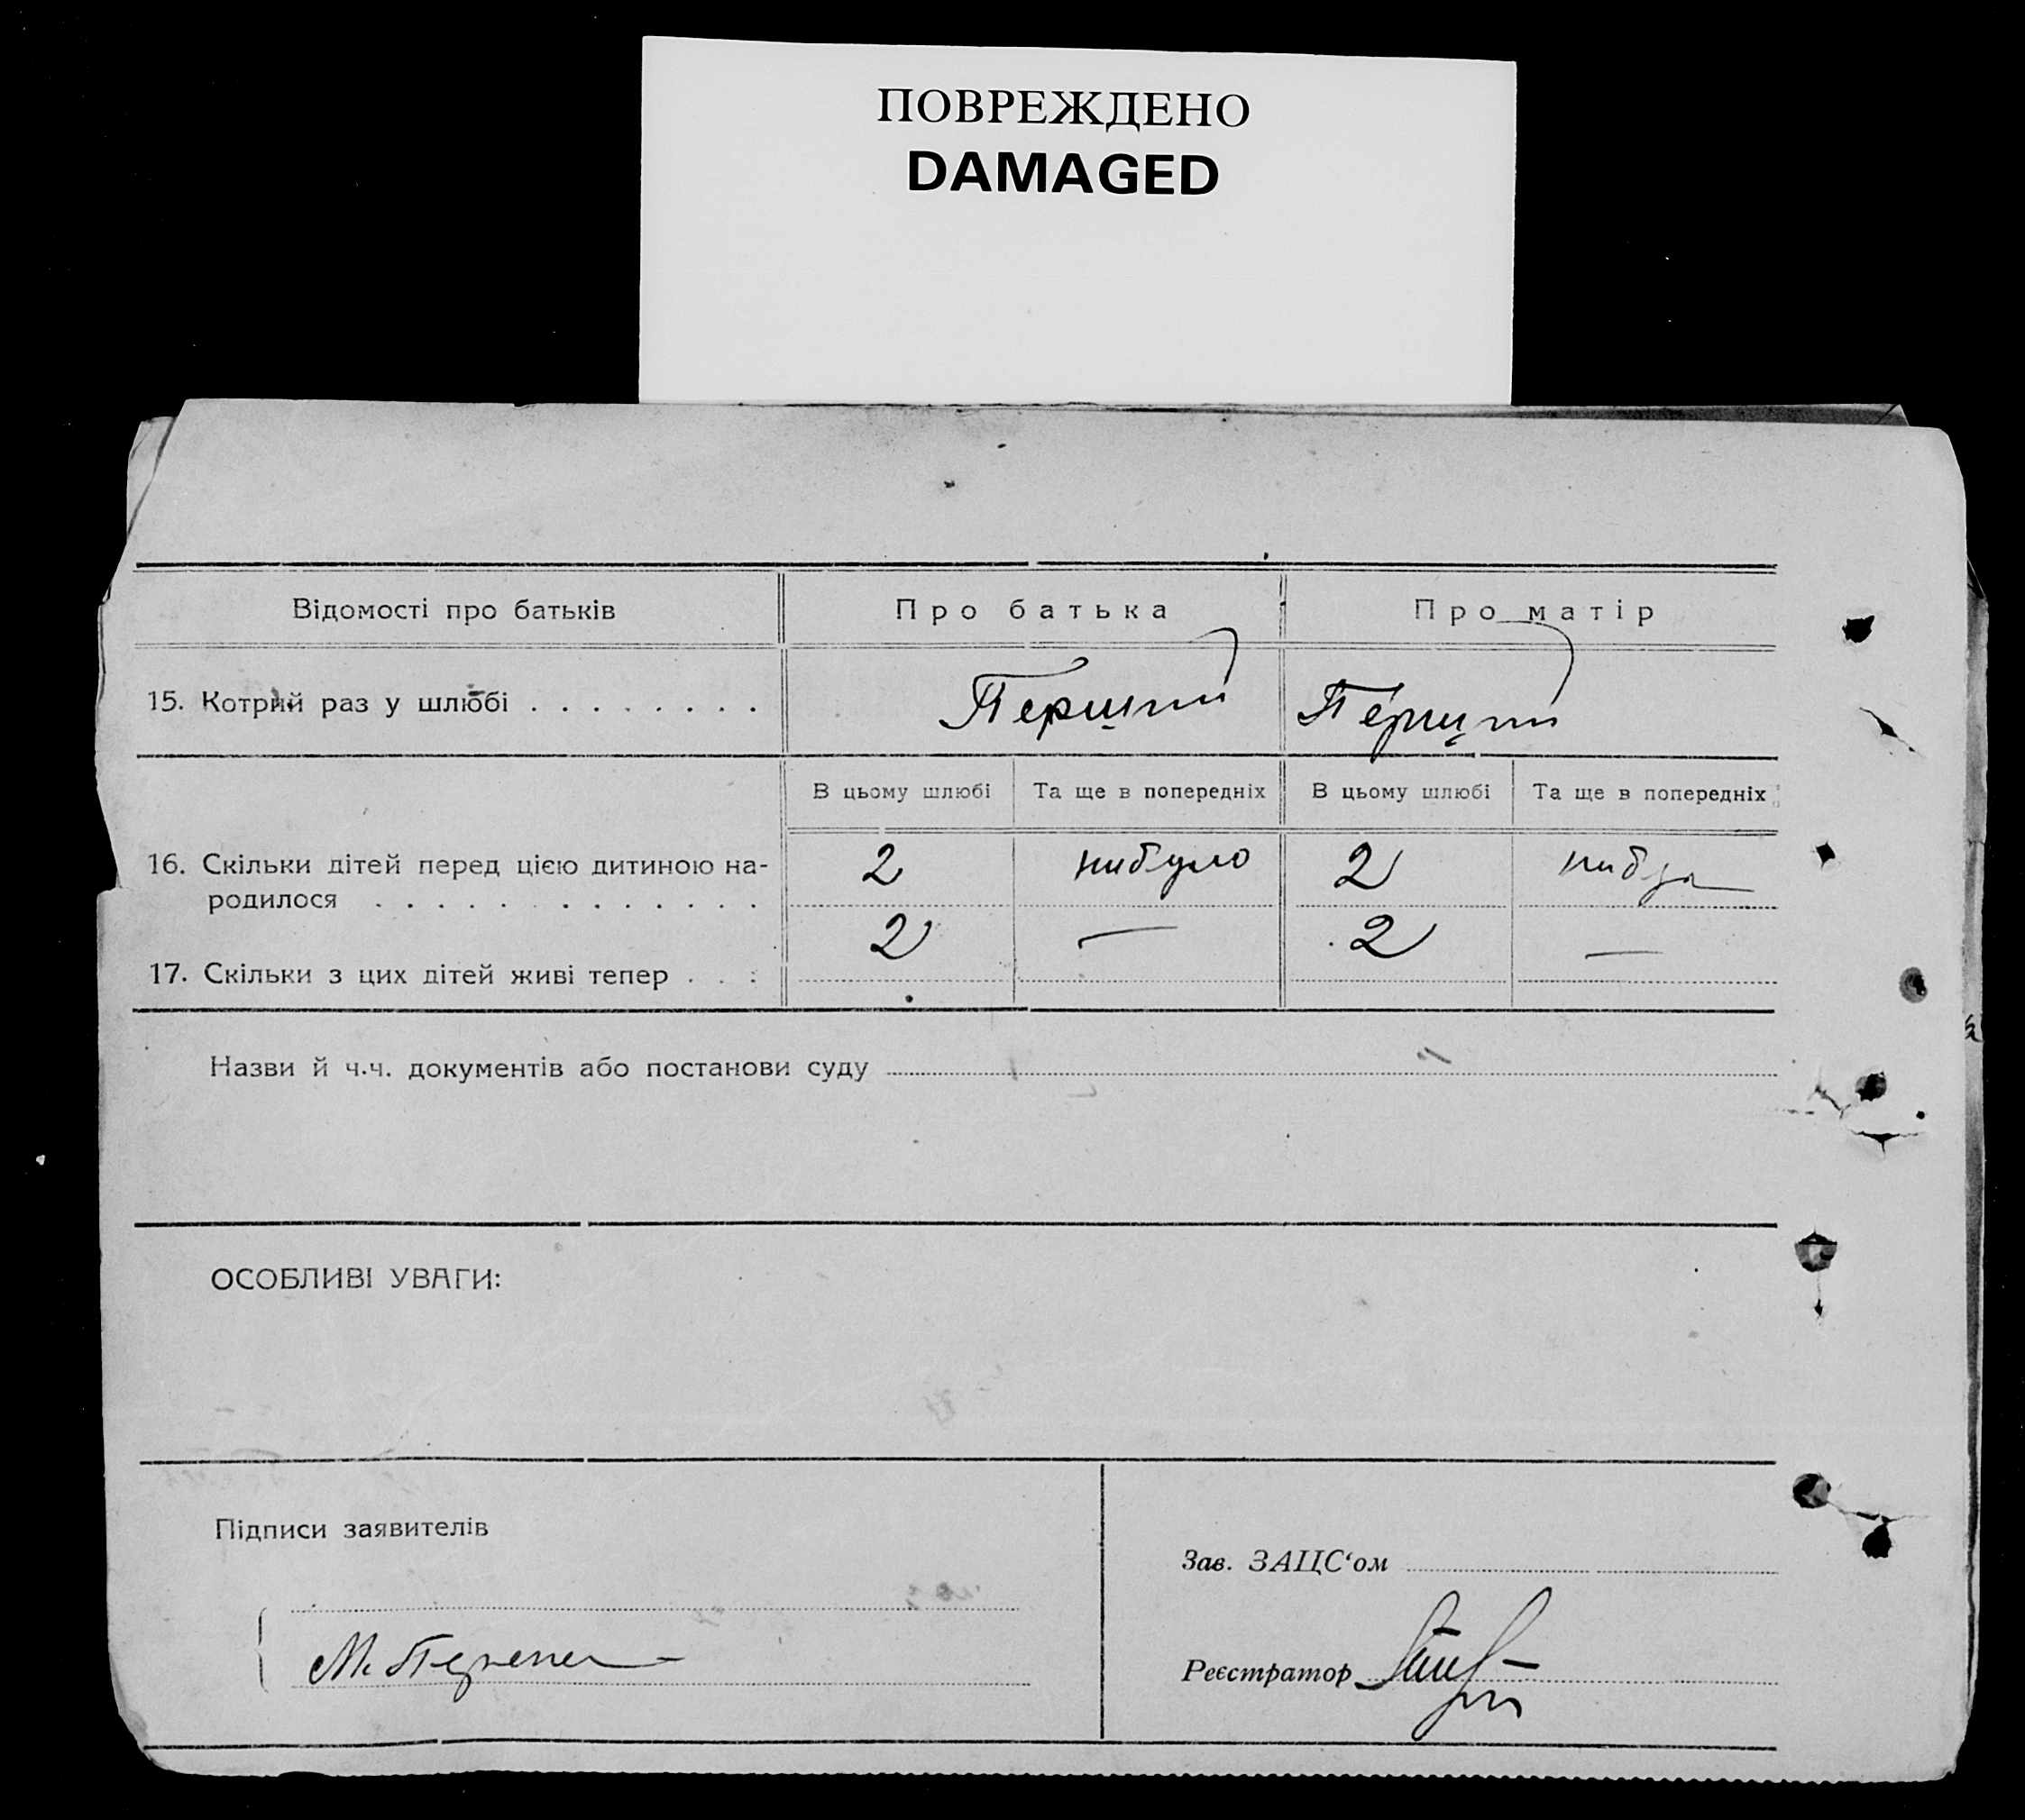 ПОВРЕЖДЕНО
DAMAGED
Відомості про батьків Про батька Про матір
15. Котрий раз у шлюбі . . . . . . . . Перший Перший
В цьому шлюбі Та ще в попередніх В цьому шлюбі Та ще в попередніх
16. Скільки дітей перед цією дитиною на-
родилося . . . . . . . . . . . . . 2 нибуло 2
17. Скільки з цих дітей живі тепер . . : 2 — 2 —
Назви й ч.ч. документів або постанови суду
ОСОБЛИВІ УВАГИ:
Підписи заявителів
Зав. ЗАЦС‘ом
М.
Реєстратор